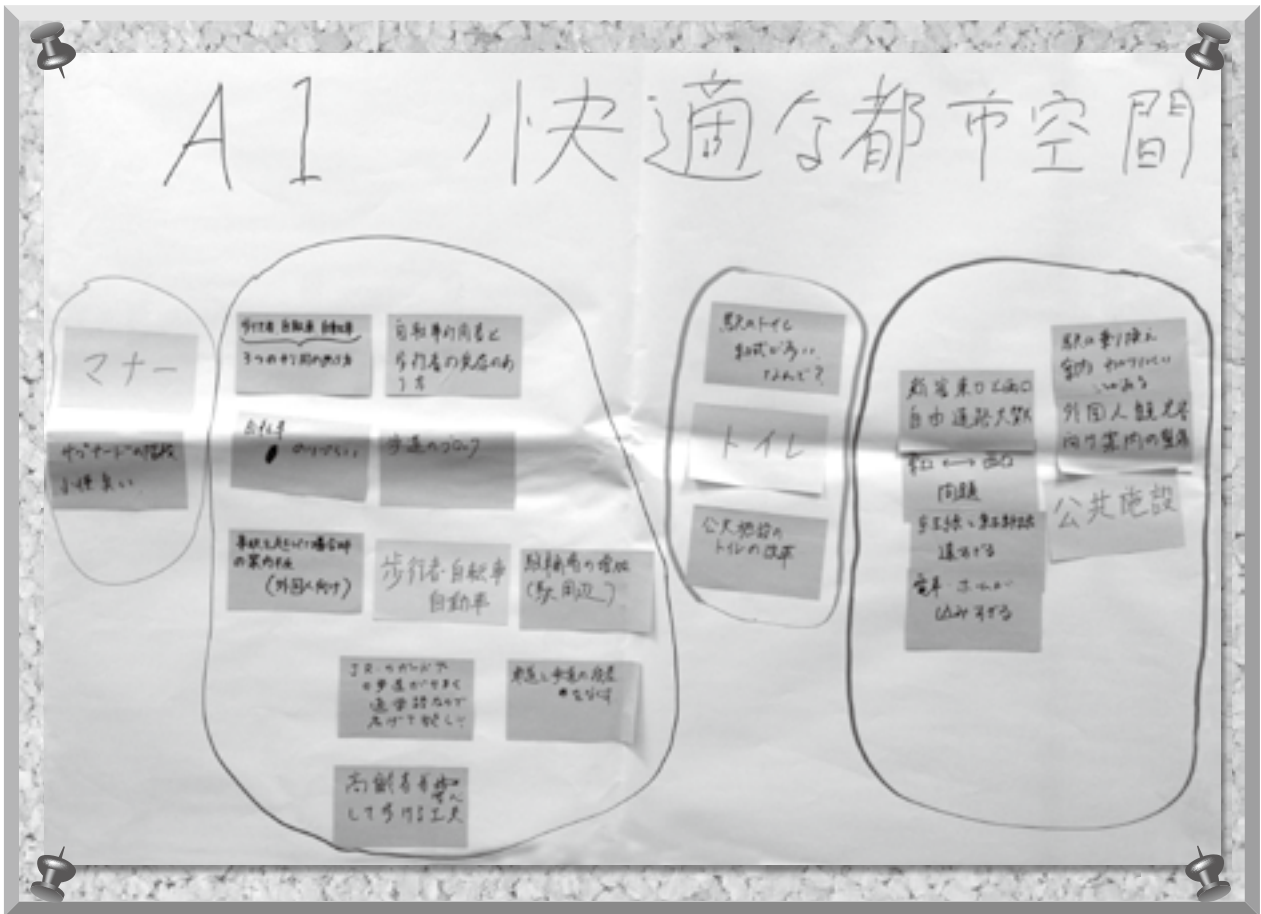 A1 快適な都市空間
マナー
サブナードの階段
小便臭い
歩行者 自転車 自動車
3つのすみ分けの仕方
自転車利用者と
歩行者の共存のあ
り方
自転車
のりづらい
歩道のブロック
の案内板
(外国人向け)
歩行者・自転車
自動車
駐輪場の増設
(駅周辺)
JRのガード下
の歩道がせまく
通学路なので
広げて欲しい
車道と歩道の段差
をなくす
高齢者が安心
して歩ける工夫
駅のトイレ
和式が多い
なんで?
トイレ
公共施設の
トイレの改革
新宿東口と西口
自由通路大歓
東口⟷西口
問題
遠すぎる
電車・ホームが
込みすぎる
駅の乗り換え
案内 わかりにくい
外国人観光客
向け案内の整備
公共施設